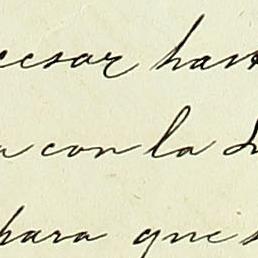 cesar hast
a con la
para que s